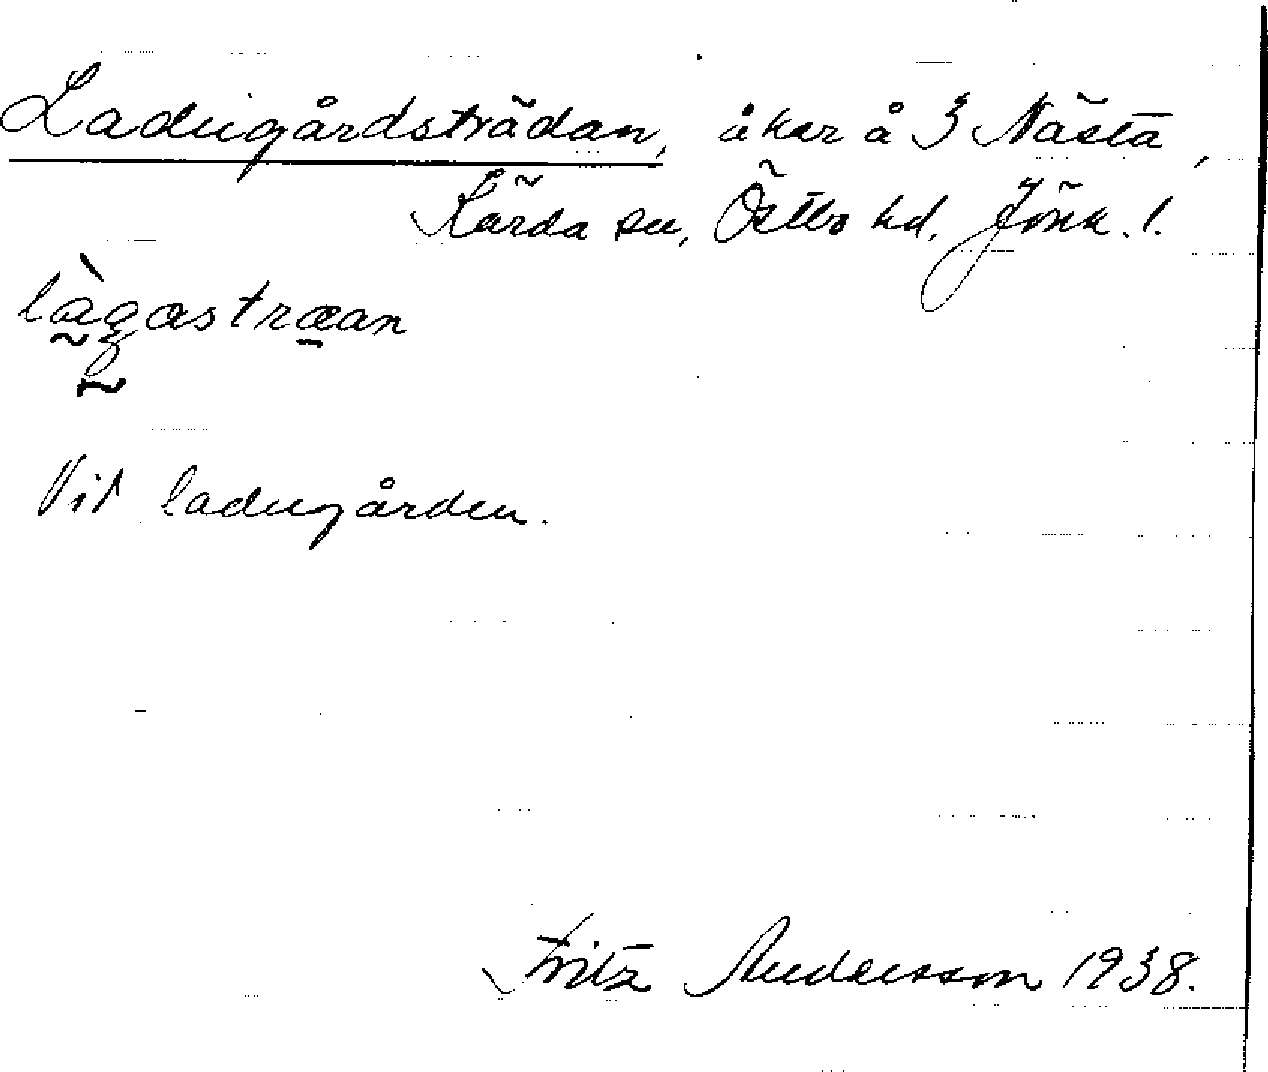 Ladugårdsträdan, åker å 3 Nästa,
Kärda sn, Östbo hd, Jönk. l.
làgastræan
Vid ladugården.
Fritz Andersson 1938.